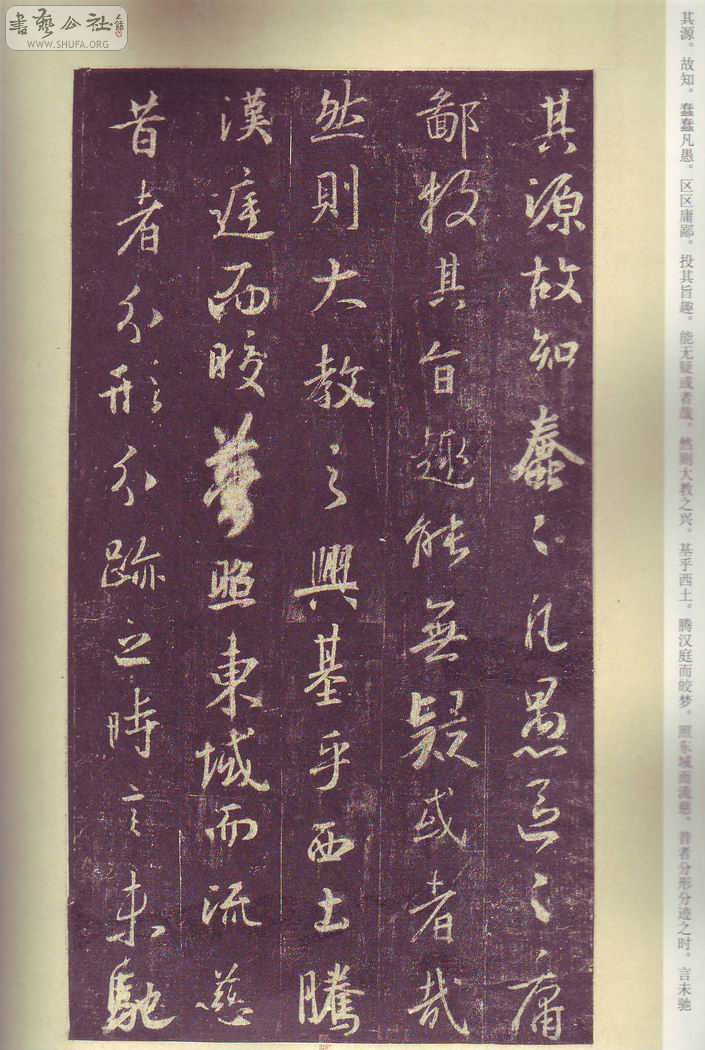 其源故知蠢〻凡愚區〻庸
鄙投其旨趣能無疑或者哉
然則大教之興基乎西土騰
漢庭而皎夢照東域而流慈
昔者分形分跡之時言未馳
其源。故知。蠢蠢凡愚。区区庸鄙。投其旨趣。能无疑或者哉。然则大教之兴。基乎西土。腾汉庭而皎梦。照东域而流慈。昔者分形分迹之时。言未驰
書藝公社
WWW.SHUFA.ORG